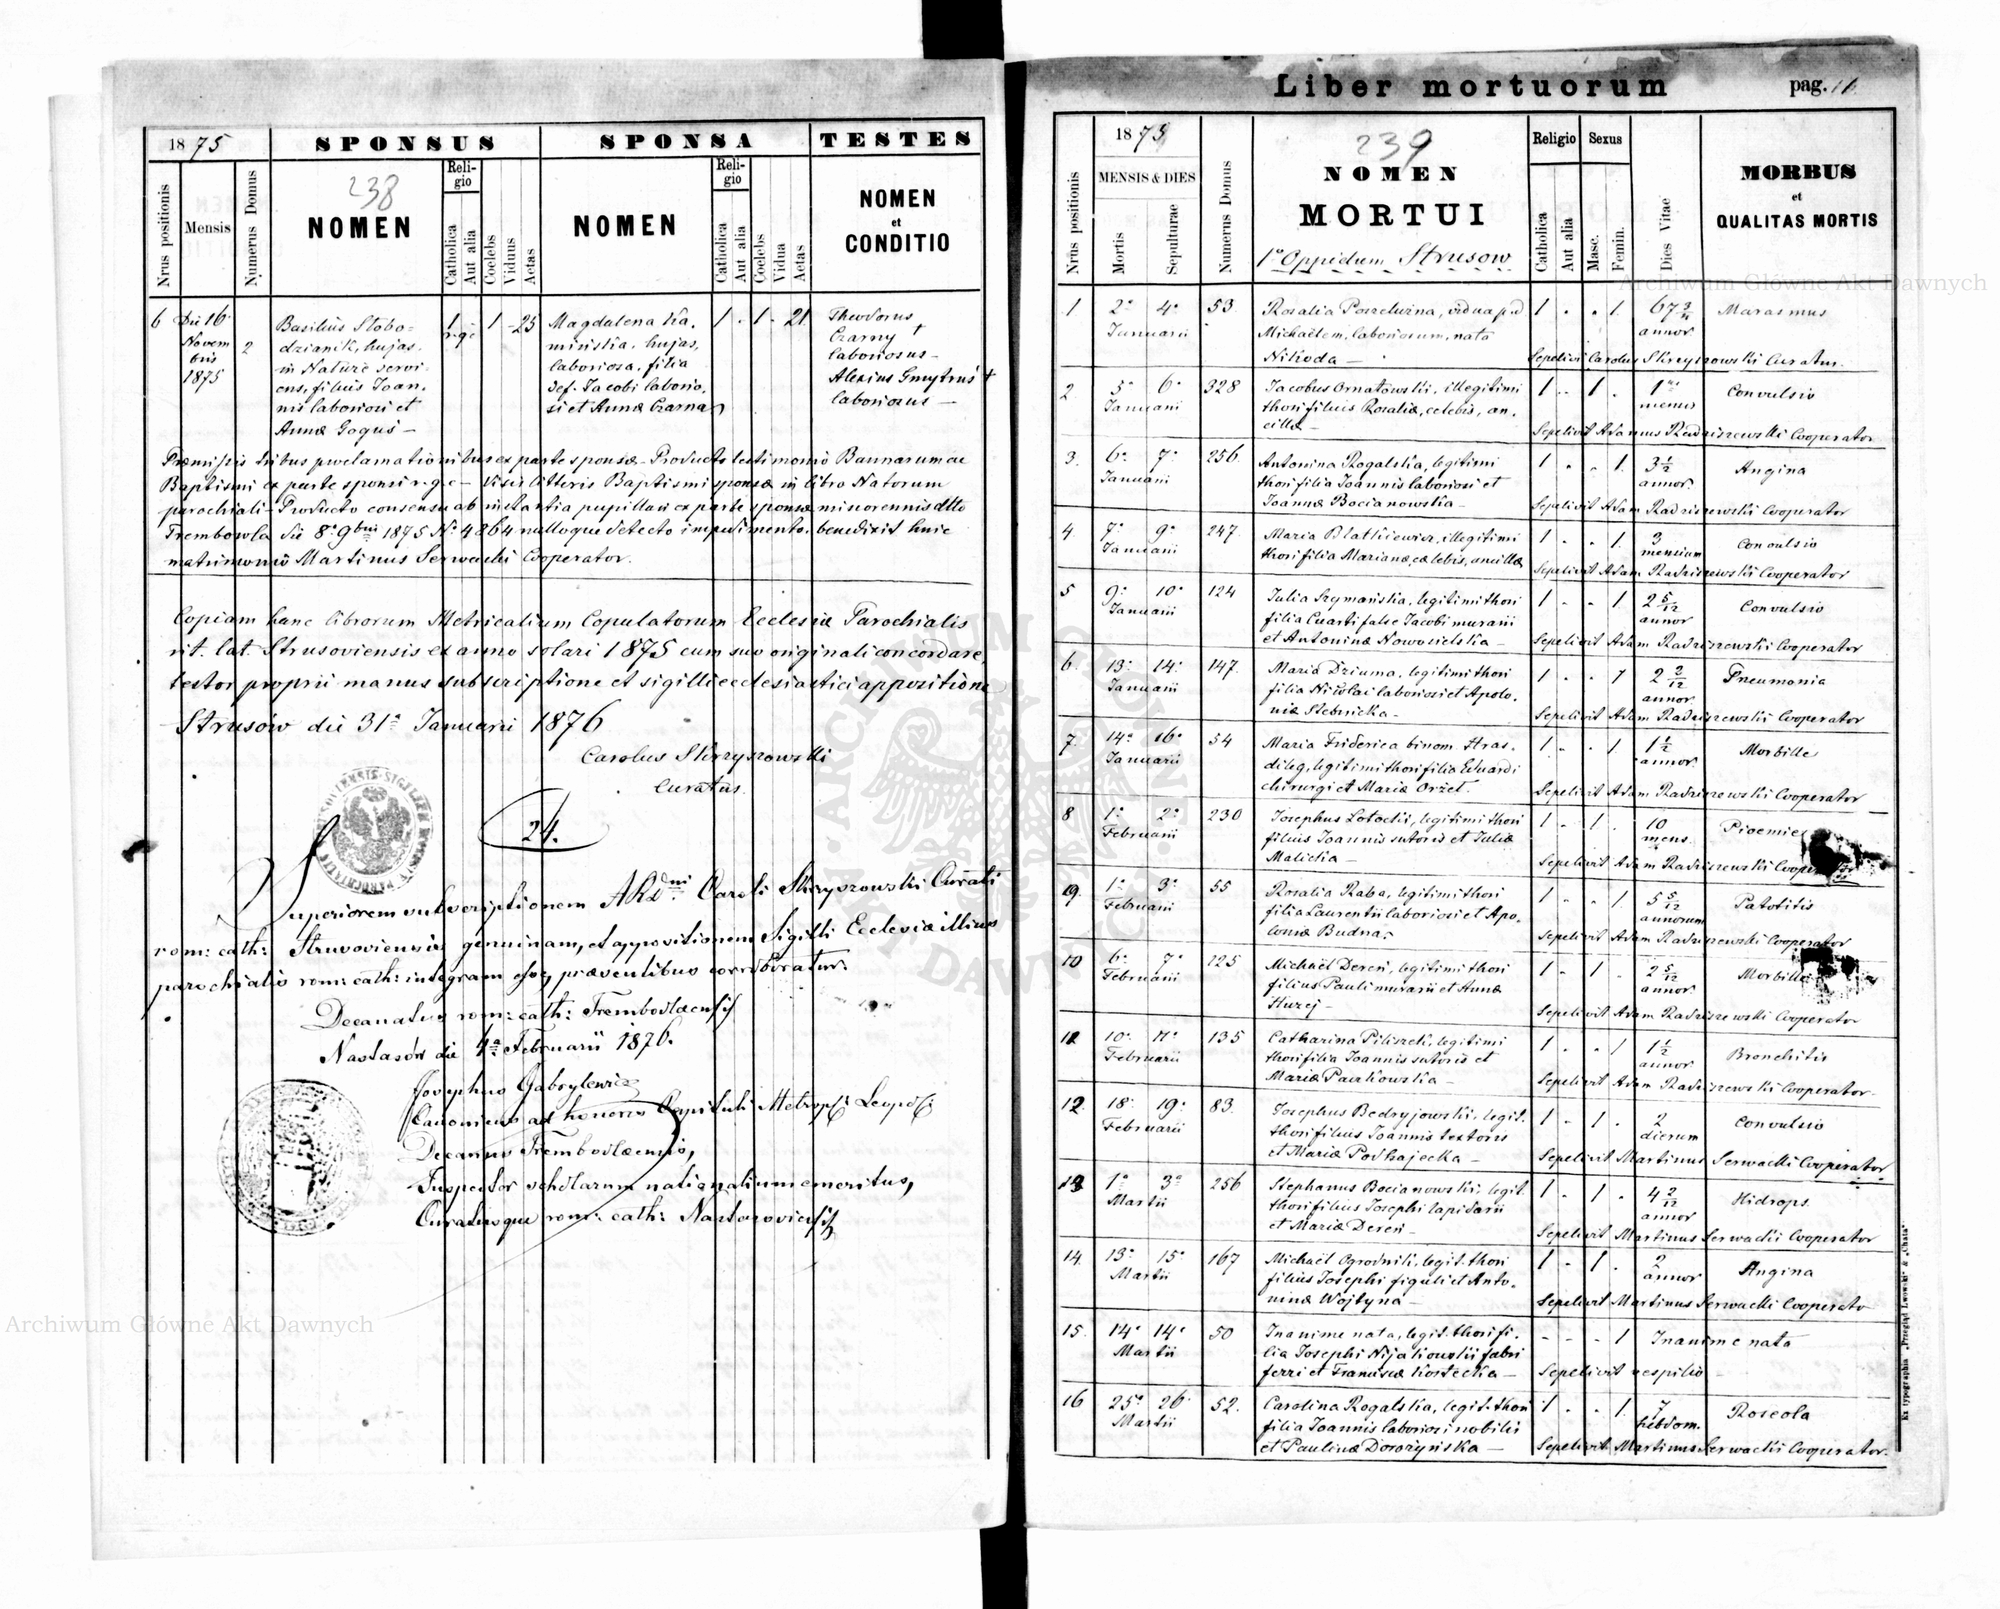 1875
SPONSUS
SPONSA
TESTES
Nrus positionis
Mensis
Numerus Domus
238
NOMEN
Religio
Catholica
Aut alia
Coelebs
Viduus
Aetas
NOMEN
Religio
Catholica
Aut alia
Coelebs
Vidua
Aetas
NOMEN
et
CONDITIO
6 Die 16
Novem
bris
1875
2
Basilius Slobo=
dzianik, hujas,
in Nałuże servi
ens, filius Joan,
nis laboriosi et
Annæ Gogus —
1
r. g. c.
1 - 25
Magdalena Ka,
minska, hujas,
laboriosa, filia
def. Jacobi laborio,
si et Annæ Czarna
1 - 1 - 21
Theodorus
Czarny +
laboriosus —
Alexius Gmytrus +
laboriosus —
Præmissis tribus proclamationibus ex parte sponsæ — Producto testimonio Bannarum ac
Baptismi ex parte sponsi r. g. c. — Visis litteris Baptismi sponsæ in libro Natorum
parochiali — Producto consensu ab instantia pupillari ex parte sponsæ minorennis dtto
Trembowla die 8ª 9bris 1875 Nº 4864 nulloque detecto impedimento, benedixit huic
matrimonio Martinus Serwacki Cooperator.
Copiam hanc librorum Metricalium Copulatorum Ecclesiæ Parochialis
rit. lat. Strusoviensis ex anno solari 1875 cum suo originali concordare,
testor proprii manus subscriptione et sigilli ecclesiastici appositione
Strusów die 31ª Januarii 1876
Carolus Skrzyszowski
Curatus.
24.
Superiorem subscriptionem ARdni Caroli Skrzyszowski Curati
rom: cath: Strusoviensis genuinam, et appositionem Sigilli Ecclesiæ illius
parochialis rom: cath: integram esse, præsentibus corroboratur.
Decanatus rom: cath: Trembovlaensis
Nastasów die 4ª Februarii 1876.
Josephus Gabrylewicz
Canonicus ad honores Capituli Metropol: Leopol:
Decanus Trembovlaensis,
Inspector scholarum nationalium emeritus,
Curatusque rom: cath: Nastasoviensis
Liber mortuorum
pag. 11
1875
MENSIS & DIES
Nrus positionis
Mortis
Sepulturae
Numerus Domus
239
NOMEN
MORTUI
1º Oppidum Strusow
Religio
Catholica
Aut alia
Sexus
Masc.
Femin.
Dies Vitae
MORBUS
et
QUALITAS MORTIS
1 2ª 4ª Januarii 53. Rosalia , vidua p. d 1 - - 1. 67 annor Marasmus
Michaelem, laboriosum, nata
Nikoda — Sepelivit Carolus Skrzyszowski Curatus.
2 5ª 6ª Januarii 328 Jacobus Ornatowski, illegitimi 1 - 1 - 1 mensis Convulsio
thori filius Rosaliæ, celebis, an,
cillæ — Sepelivit Adamus Radziszewski Cooperator
3. 6ª 7ª Januarii 256. Antonina Rogalska, legitimi 1 - - 1. 3 1/2 annor. Angina
thori filia Joannis laboriosi et
Joannæ Bocianowska — Sepelivit Adam Radziszewski Cooperator
4. 7ª 9ª Januarii 247. Maria Blatkiewicz, illegitimi 1 - - 1. 3 mensium Convulsio
thori filia Marianæ, cælebis, ancillæ Sepelivit Adam Radziszewski Cooperator
5 9ª 10ª Januarii 124 Julia Szymańska, legitimi thori 1 - - 1. 2 5/12 annor Convulsio
filia Jacobi murarii
et Antoninæ Nowosielska — Sepelivit Adam Radziszewski Cooperator
6. 13ª 14ª Januarii 147. Maria Dziuma, legitimi thori 1 - - 1 2 2/12 annor. Pneumonia
filia Nicolai laboriosi et Apolo,
niæ Stebnicka — Sepelivit Adam Radziszewski Cooperator
7. 14ª 16ª Januarii 54 Maria Friderica binom. Stras, 1 - - 1. 1 1/2 annor. Morbille
dileg, legitimi thori filia Eduardi
chirurgi et Mariæ Orzet. Sepelivit Adam Radziszewski Cooperator
8 1ª 2ª Februarii 230 Josephus Lotocki, legitimi thori 1 - 1. - 10 mens.
filius Joannis sutoris et Juliæ
Malicka — Sepelivit Adam Radziszewski Cooperator
9. 1ª 3ª Februarii 55 Rosalia Raba, legitimi thori 1 - - 1. 5 5/12 annorum Patotitis
filia Laurentii laboriosi et Apo,
loniæ Budna. Sepelivit Adam Radziszewski Cooperator
10 6ª 7ª Februarii 125 Michaël Dereń, legitimi thori 1 - 1. 2 5/12 annor. Morbille
filius Pauli murarii et Annæ
Huzej — Sepelivit Adam Radziszewski Cooperator
11. 10ª 11ª Februarii 135 Catharina Piliszek, legitimi 1 - - 1 1 1/2 annor Bronchitis
thori filia Joannis sutoris et
Mariæ Paczkowska — Sepelivit Adam Radziszewski Cooperator.
12. 18ª 19ª Februarii 83. Josephus Bedryjowski, legit. 1 - 1. 2 dierum Convulsio
thori filius Joannis textoris
et Mariæ Podhajecka — Sepelivit Martinus Serwacki Cooperator
13 1ª 3ª Martii 256 Stephanus Bocianowski, legit. 1 - 1. 4 2/12 annor Hidrops.
thori filius Josephi lapidarii
et Mariæ Dereń — Sepelivit Martinus Serwacki Cooperator
14. 13ª 15ª Martii 167 Michaël Ogrodnik, legit. thori 1 - 1. 2 annor Angina
filius Josephi figuli et Anto,
ninæ Wojtyna — Sepelivit Martinus Serwacki Cooperator
15. 14ª 14ª Martii 50 Inanime nata, legit. thori fi, - - - 1 Inanime nata
lia Josephi Nijakowski fabri
ferri et Franciscæ Kostecka — Sepelivit vespilio
16 25ª 26ª Martii 52. Carolina Rogalska, legit. thori 1 - - 1. 7 hebdom. Roseola
filia Joannis laboriosi nobilis
et Paulinæ Dorożyńska — Sepelivit Martinus Serwacki Cooperator.
Ex typographia „Przegląd Lwowski" & „Chata"
Archiwum Główne Akt Dawnych
Archiwum Główne Akt Dawnych
ARCHIWUM GŁÓWNE AKT DAWNYCH